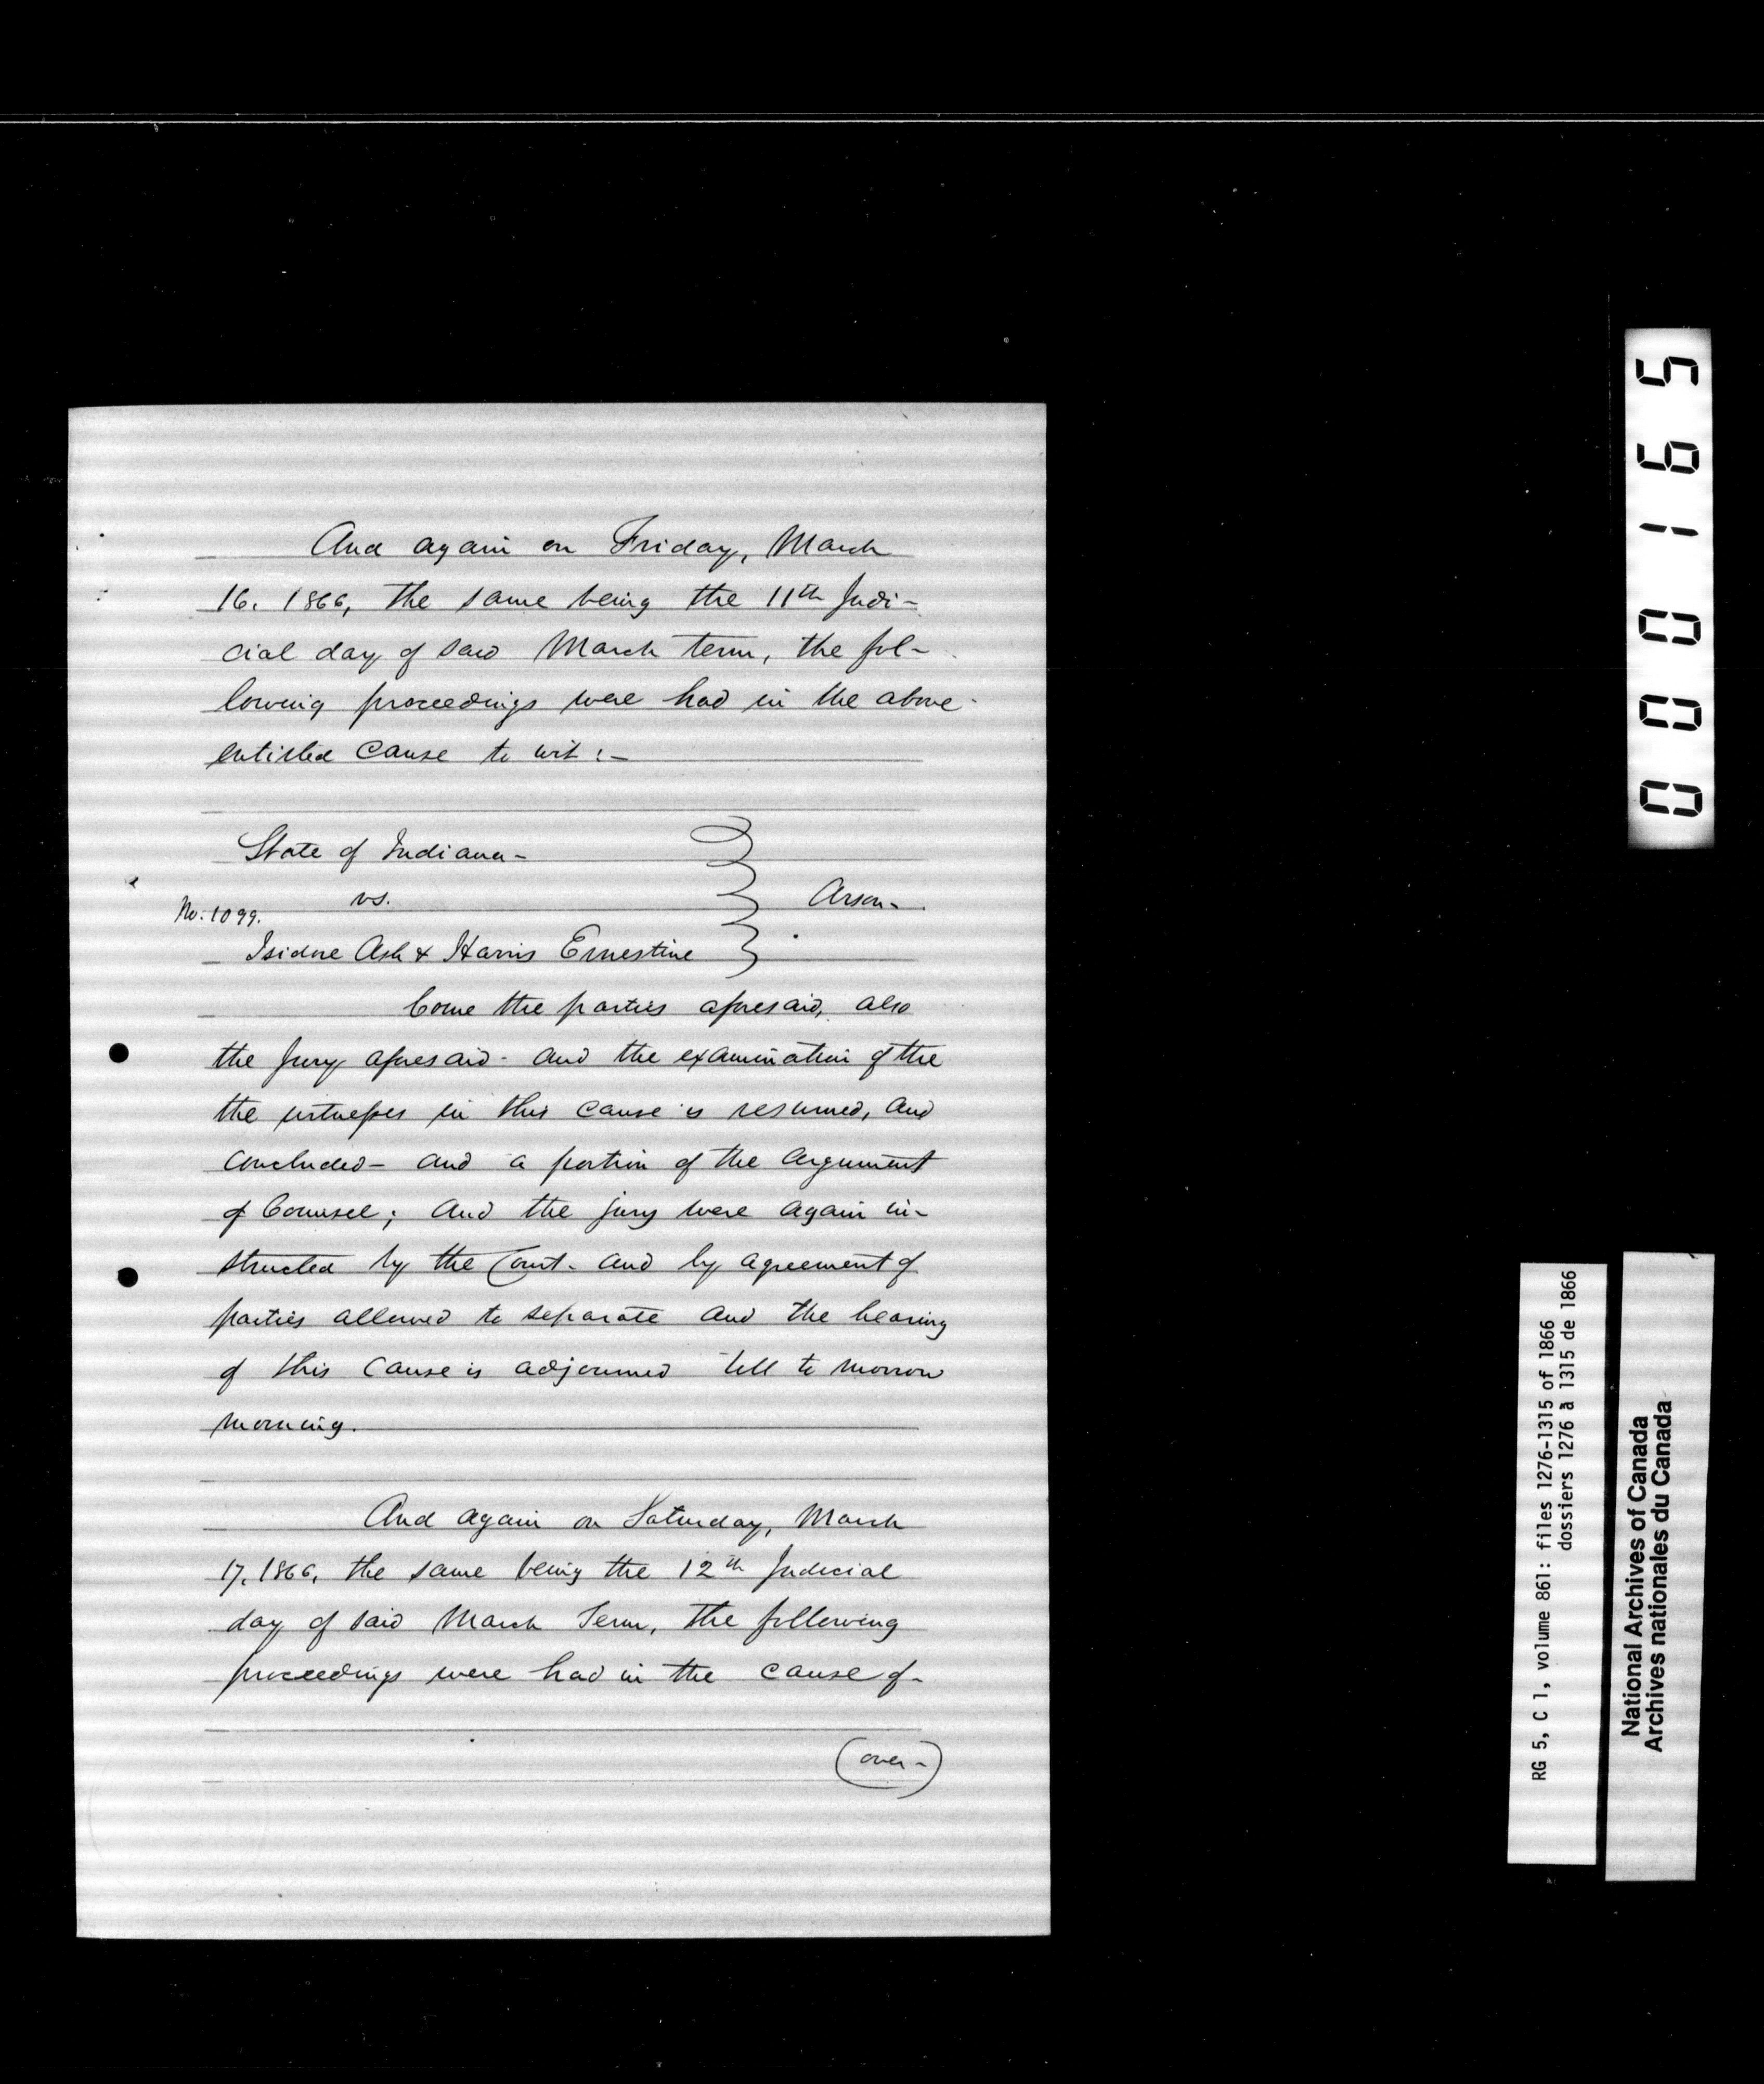 And again on Friday, March
16. 1866, the same being the 11th Judi-
cial day of said March term, the fol-
lowing proceedings were had in the above
entitled cause to wit :-
State of Indiana -
vs.
No. 1099.
Arson -
Isidore Ash & Harris Ernestine
Come the parties aforesaid, also
the Jury aforesaid - and the examination of the
the witnesses in this cause is resumed, and
concluded - and a portion of the argument
of Counsel; and the jury were again in-
structed by the Court - and by agreement of
parties allowed to separate and the hearing
of this cause is adjourned till to morrow
morning.
And again on Saturday, March
17, 1866, the same being the 12th Judicial
day of said March Term, the following
proceedings were had in the cause of -
(over -)
000165
RG 5, C 1, volume 861: files 1276-1315 of 1866
dossiers 1276 à 1315 de 1866
National Archives of Canada
Archives nationales du Canada